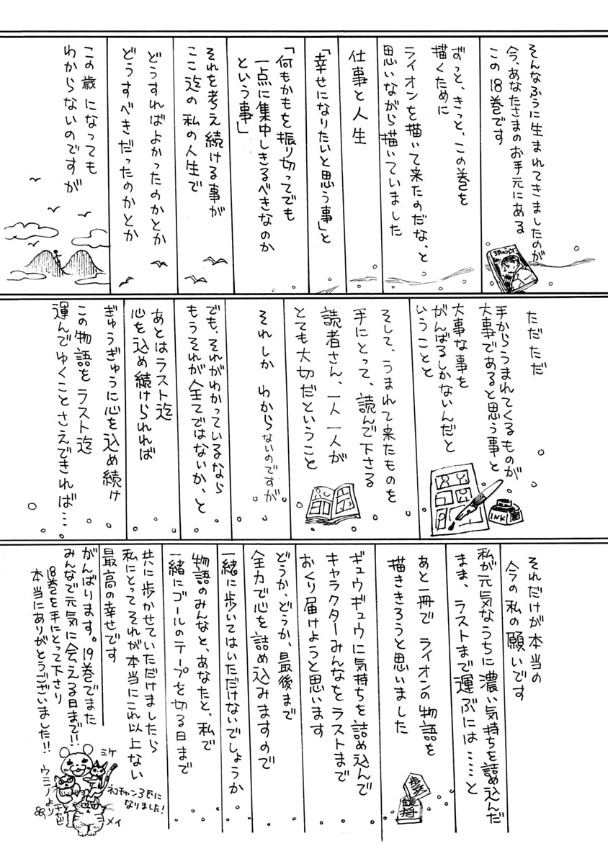 そんなふうに生まれてきましたのが
今、あなたさまのお手元にある
この18巻です
ずっと、きっと、この巻を
描くために
ライオンを描いて来たのだな、と
思いながら描いていました
仕事と人生
「幸せになりたいと思う事」と
「何もかもを振り切ってでも
一点に集中しきるべきなのか
という事」
それを考え続ける事が
ここ迄の私の人生で
どうすればよかったのかとか
どうすべきだったのかとか
この歳になっても
わからないのですが
ただただ
手からうまれてくるものが
大事であると思う事と
大事な事を
がんばるしかないんだと
いうことと
そして、うまれて来たものを
手にとって、読んで下さる
読者さん、一人一人が
とても大切だということ
それしか わからないのですが
でも、それがわかっているなら
もうそれが全てではないか、と
あとはラスト迄
心を込め続けられれば
ぎゅうぎゅうに心を込め続け
この物語をラスト迄
運んでゆくことさえできれば…
INK
それだけが本当の
今の私の願いです
私が元気なうちに濃い気持ちを詰め込んだ
まま、ラストまで運ぶには……と
あと一冊でライオンの物語を
描ききろうと思いました
ギュウギュウに気持ちを詰め込んで
キャラクターみんなをラストまで
おくり届けようと思います
どうか、どうか、最後まで
全力で心を詰め込みますので
一緒に歩いてはいただけないでしょうか
物語のみんなと、あなたと、私で
一緒にゴールのテープを切る日まで
共に歩かせていただけましたら
私にとってそれが本当にこれ以上ない
最高の幸せです
がんばります。19巻でまた
みんなで元気に会える日まで!!
18巻を手にとって下さり
本当にありがとうございました!!
ミケ
ネコチャン3匹に
なりました!
メイ
ウミノより